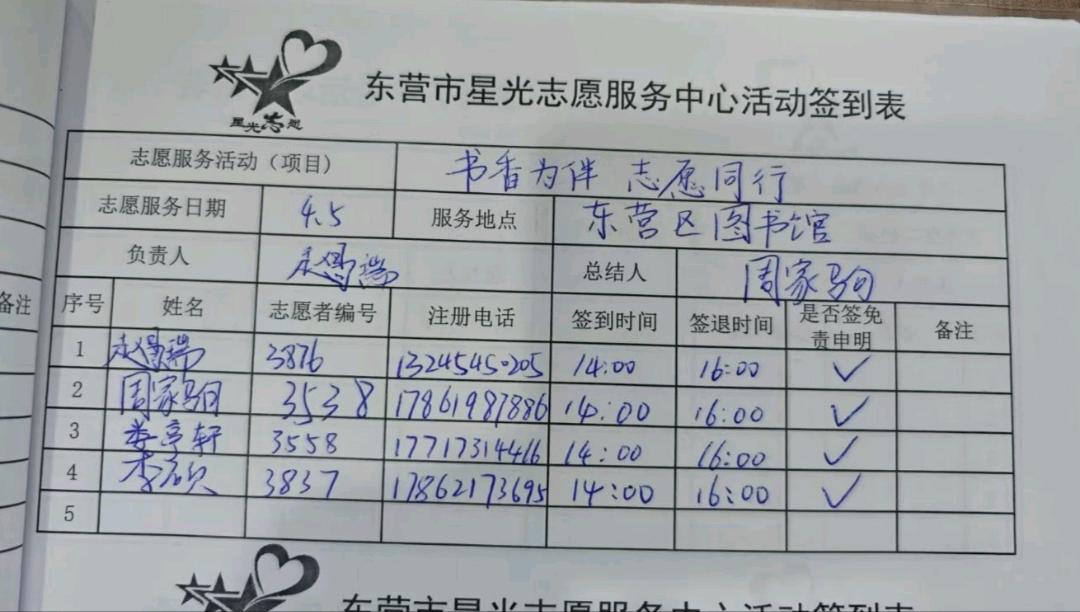 星光志愿
东营市星光志愿服务中心活动签到表
志愿服务活动（项目） 书香为伴 志愿同行
志愿服务日期 4.5 服务地点 东营区图书馆
负责人 赵晨瑞 总结人 周家驹
备注 序号 姓名 志愿者编号 注册电话 签到时间 签退时间 是否签免责申明 备注
1 赵晨瑞 3876 13245450205 14:00 16:00 ✓
2 周家驹 3538 17861987886 14:00 16:00 ✓
3 娄亭轩 3558 17717314416 14:00 16:00 ✓
4 李欣 3837 17862173695 14:00 16:00 ✓
5
东营市星光志愿服务中心活动签到表